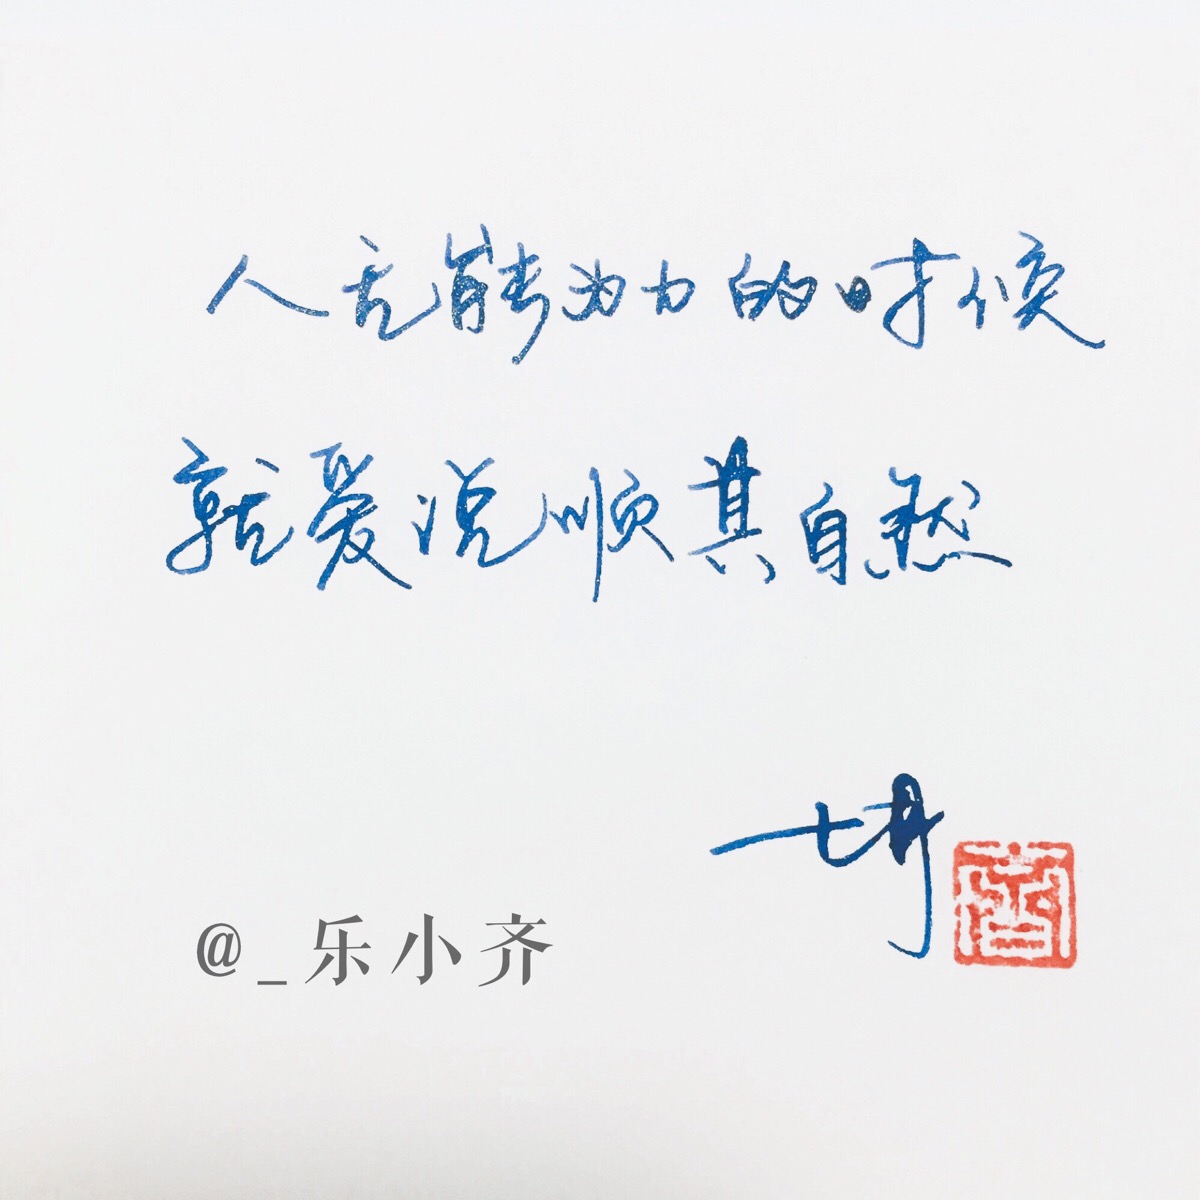 人无能为力的时候
就爱说顺其自然
@_乐小齐